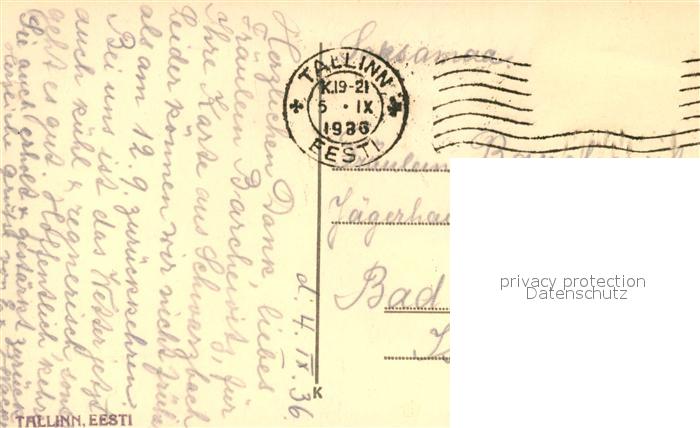 Herzlichen Dank, liebes
Fräulein Barchewitz, für
Ihre Karte aus Schwarzbach
Leider können wir nicht früh
als am 12. 9. zurückkehren.
Bei uns ist das Wetter jetzt
auch kühl & regnerisch, sonst
geht es gut. Hoffentlich kehr
Sie auch erholt & gestärkt zurück
Herzliche Grüße von
d. 4. IX. 36.
TALLINN, EESTI
K
Saksamaa
TALLINN
K.19-21
5 · IX
1936
EESTI
Fräulein
Jägerhau
Bad
privacy protection
Datenschutz